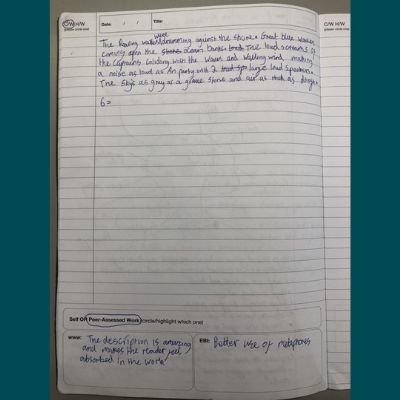 C/W H/W
please circle one
Date: / /
Title:
C/W H/W
please circle one
were
The howling waters drumming against the shore. Great blue waves
coming upon the down The loud screams of
the Captains Colliding with the waves and walking wind, making
a noise as loud as An party with 2 large loud speakers.
The sky is as gray as a grave stone and air as thick as
6=
Self OR Peer-Assessed Work (circle/highlight which one)
www:
The description is amazing
and makes the reader feel
absorbed in the work!
EBI: Better use of metaphores